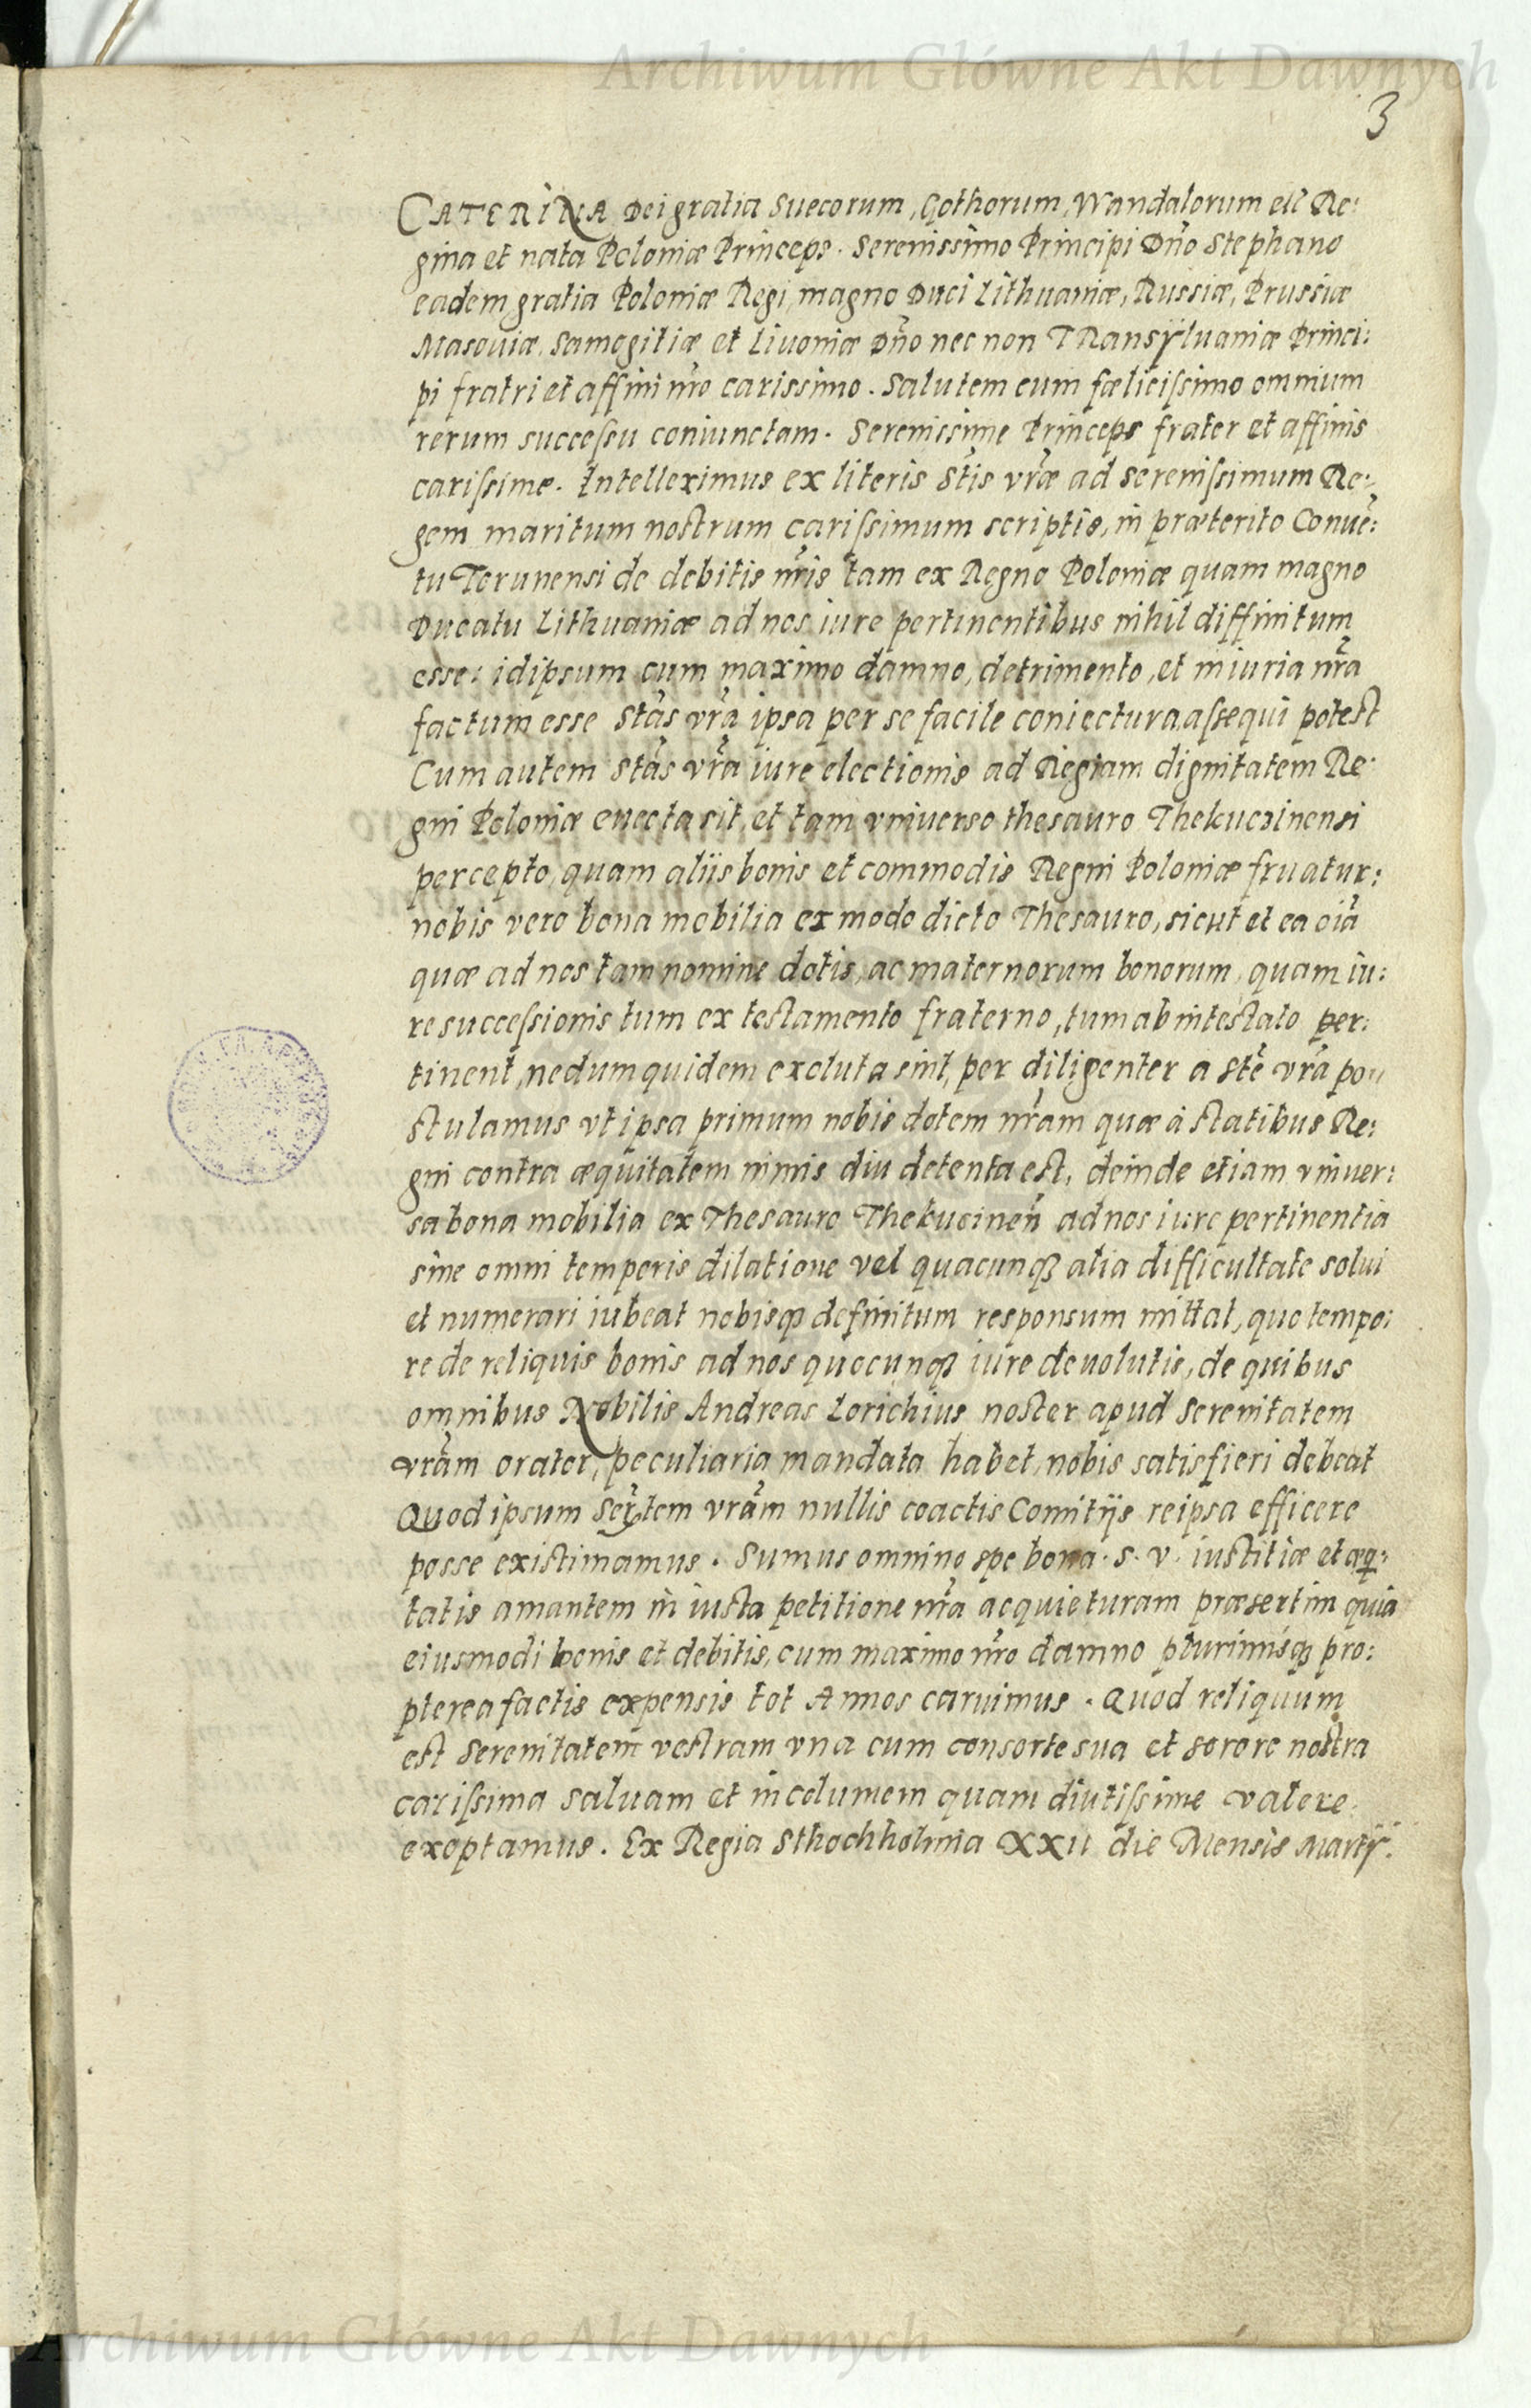 Archiwum Główne Akt Dawnych
3
CATERINA Dei gratia Suecorum, Gothorum, Wandalorum etc̃ Re:
gina et nata Poloniæ Princeps. Serenissimo Principi Dño Stephano
eadem gratia Poloniæ Regi, magno Duci Lithuaniæ, Russiæ, Prussiæ
Masouiæ, Samogitiæ et Liuoniæ Dño nec non TRansÿluaniæ Princi:
pi fratri et affini nr̃o carissimo. Salutem cum fæliciſsimo omnium
rerum succeſsu coniunctam. Serenissime Princeps frater et affinis
cariſsime. Intelleximus ex literis Sťis vr̃æ ad sereniſsimum Re:
gem maritum nostrum cariſsimum scriptis, in præterito Conuẽ:
tu Torunensi de debitis nr̃is tam ex Regno Poloniæ quam magno
Ducatu Lithuaniæ ad nos iure pertinentibus nihil diffinitum
esse: idipsum cum maximo damno, detrimento, et iniuria nr̃a
factum esse Stãs vr̃a ipsa per se facile coniectura aſsequi potest
Cum autem Stãs vr̃a iure electionis ad Regiam dignitatem Re:
gni Poloniæ euecta sit, et tam vniuerso thesauro Thekucinensi
percepto, quam aliis bonis et commodis Regni Poloniæ fruatur:
nobis vero bona mobilia ex modo dicto Thesauro, sicut et ea oĩa
quæ ad nos tam nomine dotis, ac maternorum bonorum, quam iu:
re succeſsionis tum ex testamento fraterno, tum ab intestato per:
tinent, nedum quidem exoluta sint, per diligenter a Stẽ vr̃a po:
stulamus vt ipsa primum nobis dotem nr̃am quæ à statibus Re:
gni contra æquitatem nimis diu detenta est, deinde etiam vniuer:
sa bona mobilia ex Thesauro Thekucineñ ad nos iure pertinentia
sine omni temporis dilatione vel quacunqꝫ alia difficultate solui
et numerari iubeat nobisqꝫ definitum responsum mittat, quo tempo:
re de reliquis bonis ad nos quocunqꝫ iure deuolutis, de quibus
omnibus Nobilis Andreas Lorichius noster apud Serenitatem
vr̃am orator, peculiaria mandata habet, nobis satisfieri debeat
Quod ipsum Ser̃tem vr̃am nullis coactis Comitijs reipsa efficere
posse existimamus. Sumus omnino spe bona. S. V. iustitiæ et æq̃:
tatis amantem in iusta petitione nr̃a acquieturam præsertim quia
eiusmodi bonis et debitis, cum maximo nr̃o damno plurimisqꝫ pro:
pterea factis expensis tot Annos caruimus. Quod reliquum
est Serenitatem vestram vna cum consorte sua et sorore nostra
cariſsima saluam et incolumem quam diutiſsime valere
exoptamus. Ex Regia Sthochholmia XXII die Mensis Martÿ.
Archiwum Główne Akt Dawnych